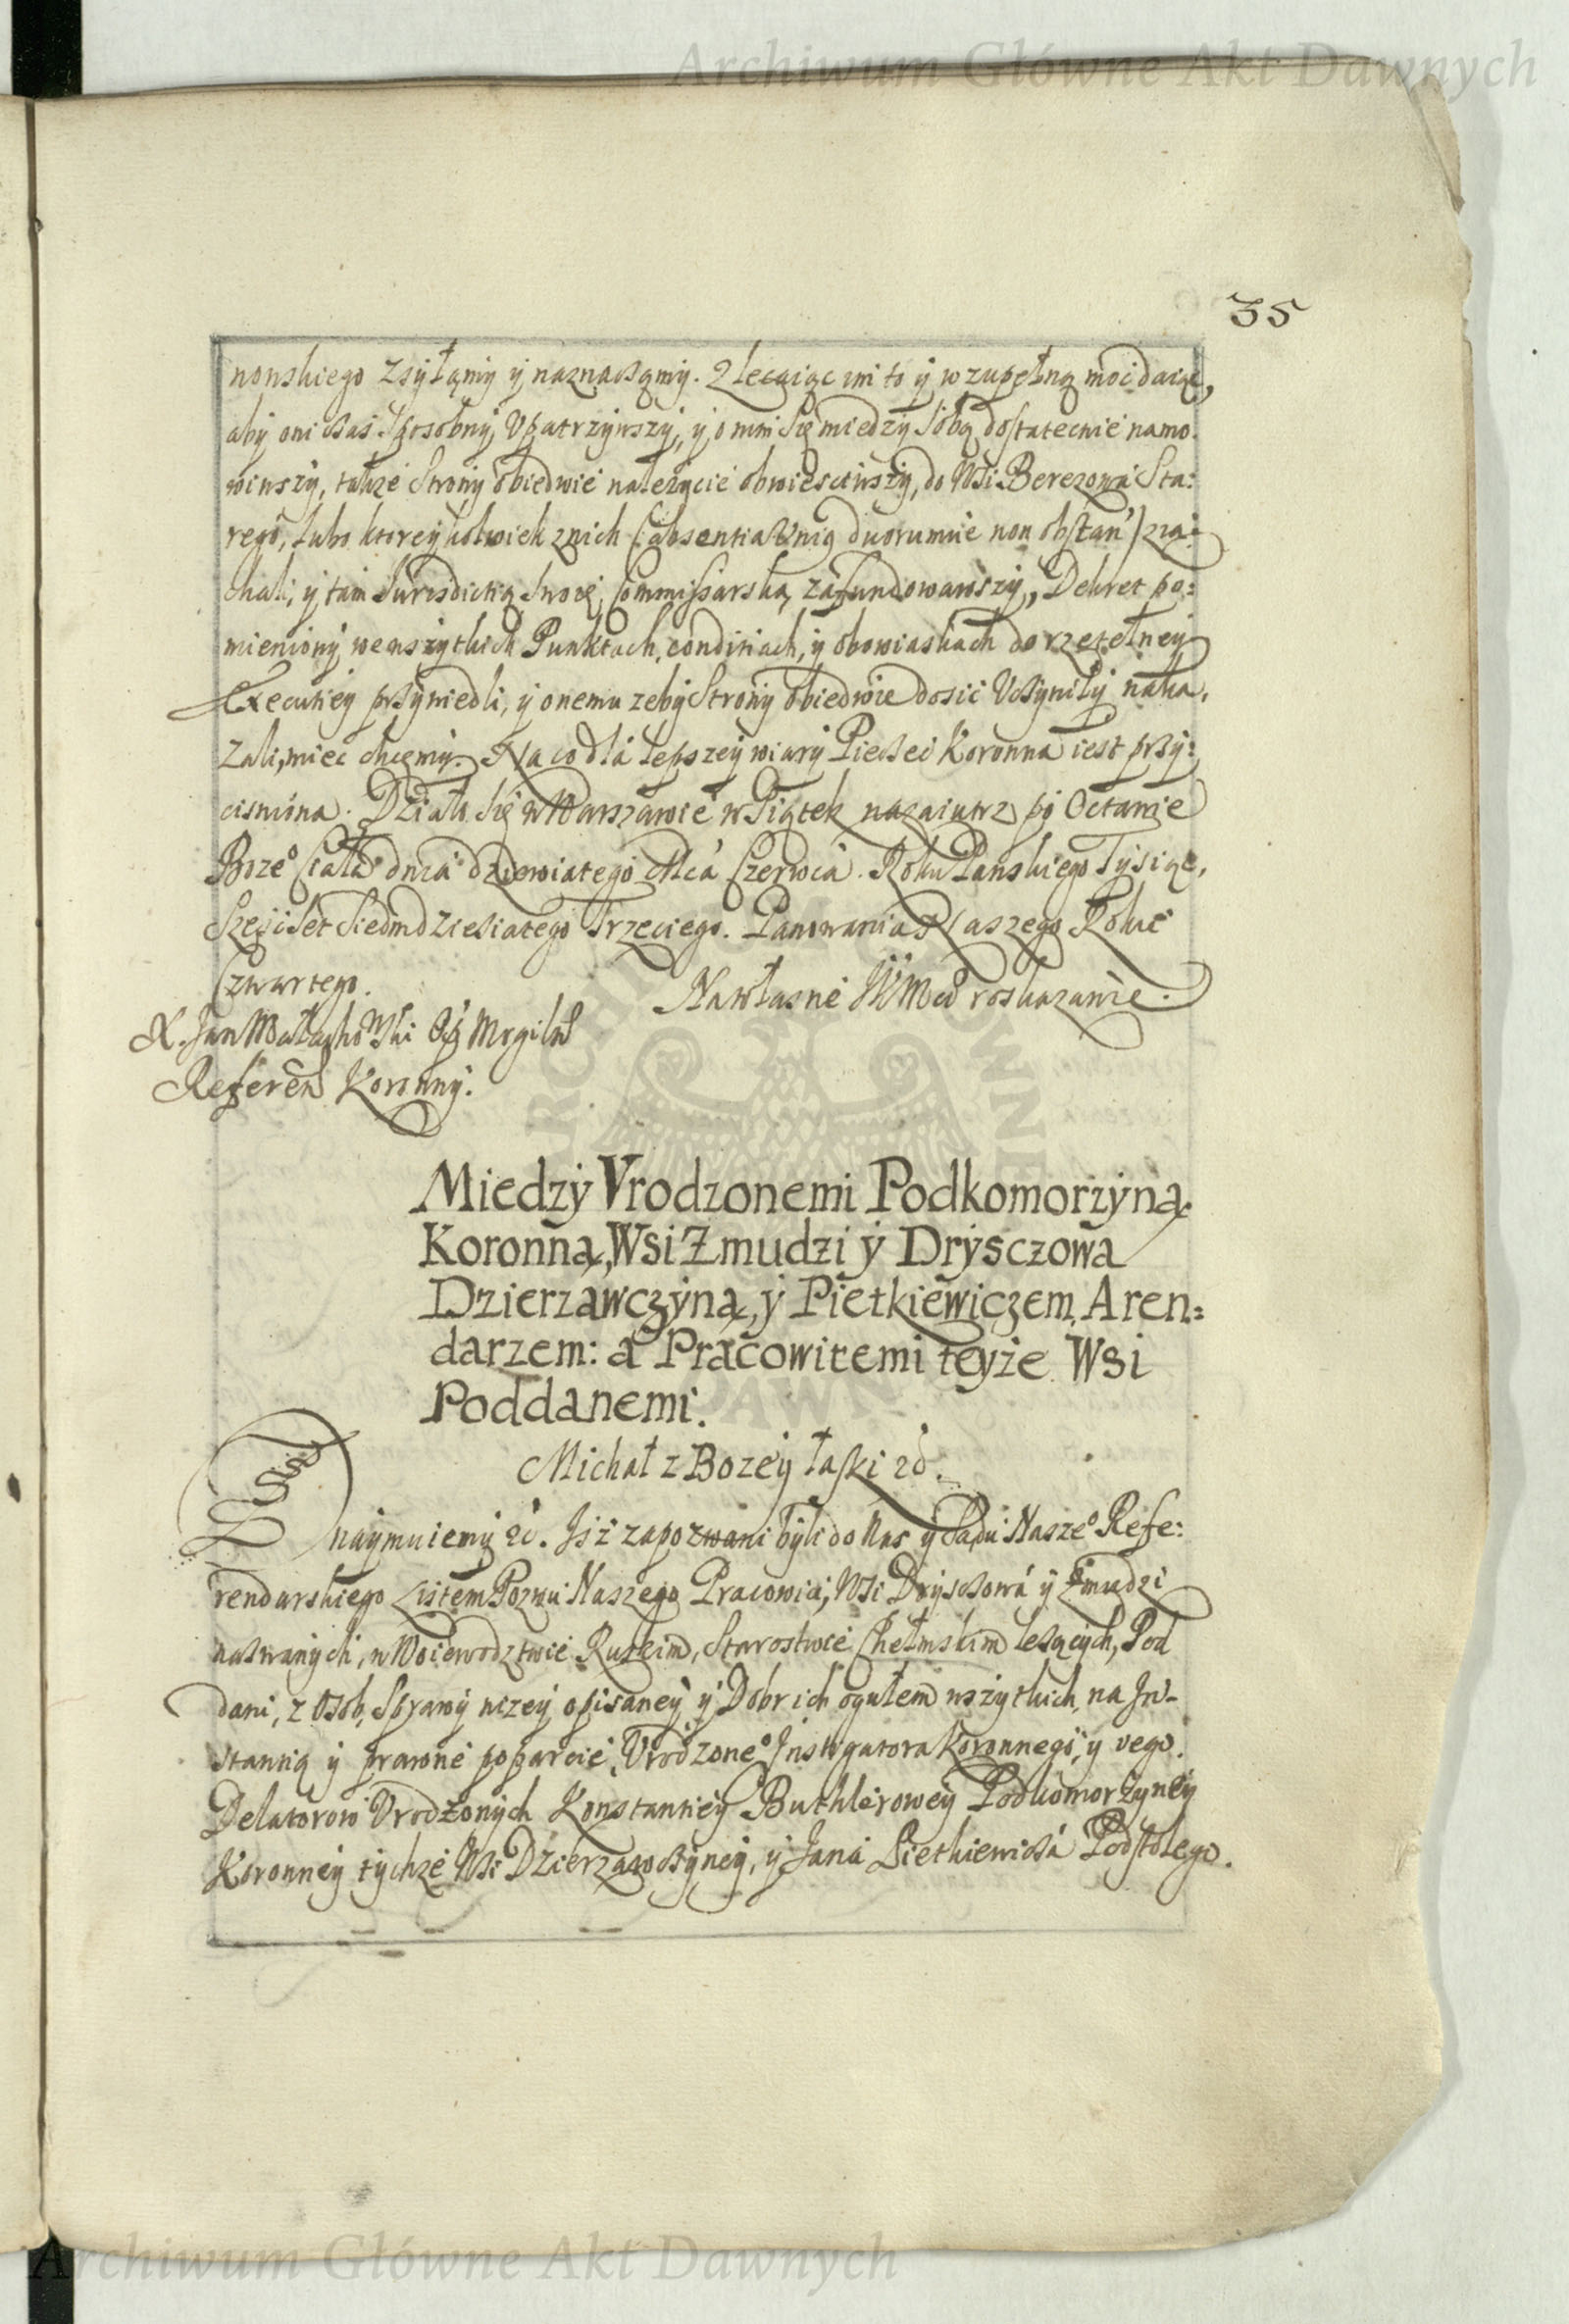 Archiwum Główne Akt Dawnych
35
nonskiego Zsyłamy y naznaczamy. Zlecaiąc im to y w zupełną moc daiąc,
aby oni czas sposobny Upatrzywszy, y o nim się miedzy sobą dostatecnie namo.
wiwszy, także Strony obiedwie należycie obwiesciwszy, do Wsi Berezowa Sta:
rego, lubo ktorey kolwiek znich (absentia Unig duorumue non obstan) zia:
chali, y tam Iurisdictią swoię Commissarską zafundowawszy, Dekret po:
mieniony we wszytkich Punktach, conditiach, y obowiaskach do rzetelney
Executiey przywiedli, y onemu zeby Strony obiedwie dosić Uczyniły naka,
zali, miec chcemy. Na co dla lepszey wiary Pieczęć Koronna iest przy:
cisniona. Działo się w Warszawie w Piątek nazaiutrz po Octawie
Boże° Ciała dnia dziewiątego Mca Czerwca. Roku Pańskiego Tysiąc,
Szescset Siedmdziesiatego Trzeciego. Panowania Naszego Roku
Czwartego.
Na własne JKMci roskazanie.
X. Jan Małachowski Op Mogilski
Referen Koronny.
Miedzy Vrodzonemi Podkomorzyną
Koronną, Wsi Zmudzi y Drysczowa
Dzierzawczyną, y Pietkiewiczem Aren=
darzem: a Pracowitemi teyże Wsi
Poddanemi.
Michał z Bozey łaski &c.
Oznaymuiemy &c. Isz zapozwani byli do Nas y Sądu Nasze° Refe:
rendarskiego Listem Pozwu Naszego Pracowici, Wsi Dryszczowa y Zmudzi
nazwanych, w Woiewodztwie Ruskim, Starostwie Chełmskim leżących, Pod
dani, z Osob, Sprawy nizey opisaney y Dobr ich ogułem wszytkich, na In-
stantią y prawne poparcie Vrodzone° Instigatora Koronnego, y iego
Delatorow Vrodzonych Konstantiey Buthlerowey Podkomorzyney
Koronney tychże Wsi Dzierzawczyney, y Jana Pietkiewicza Podstolego.
Archiwum Główne Akt Dawnych